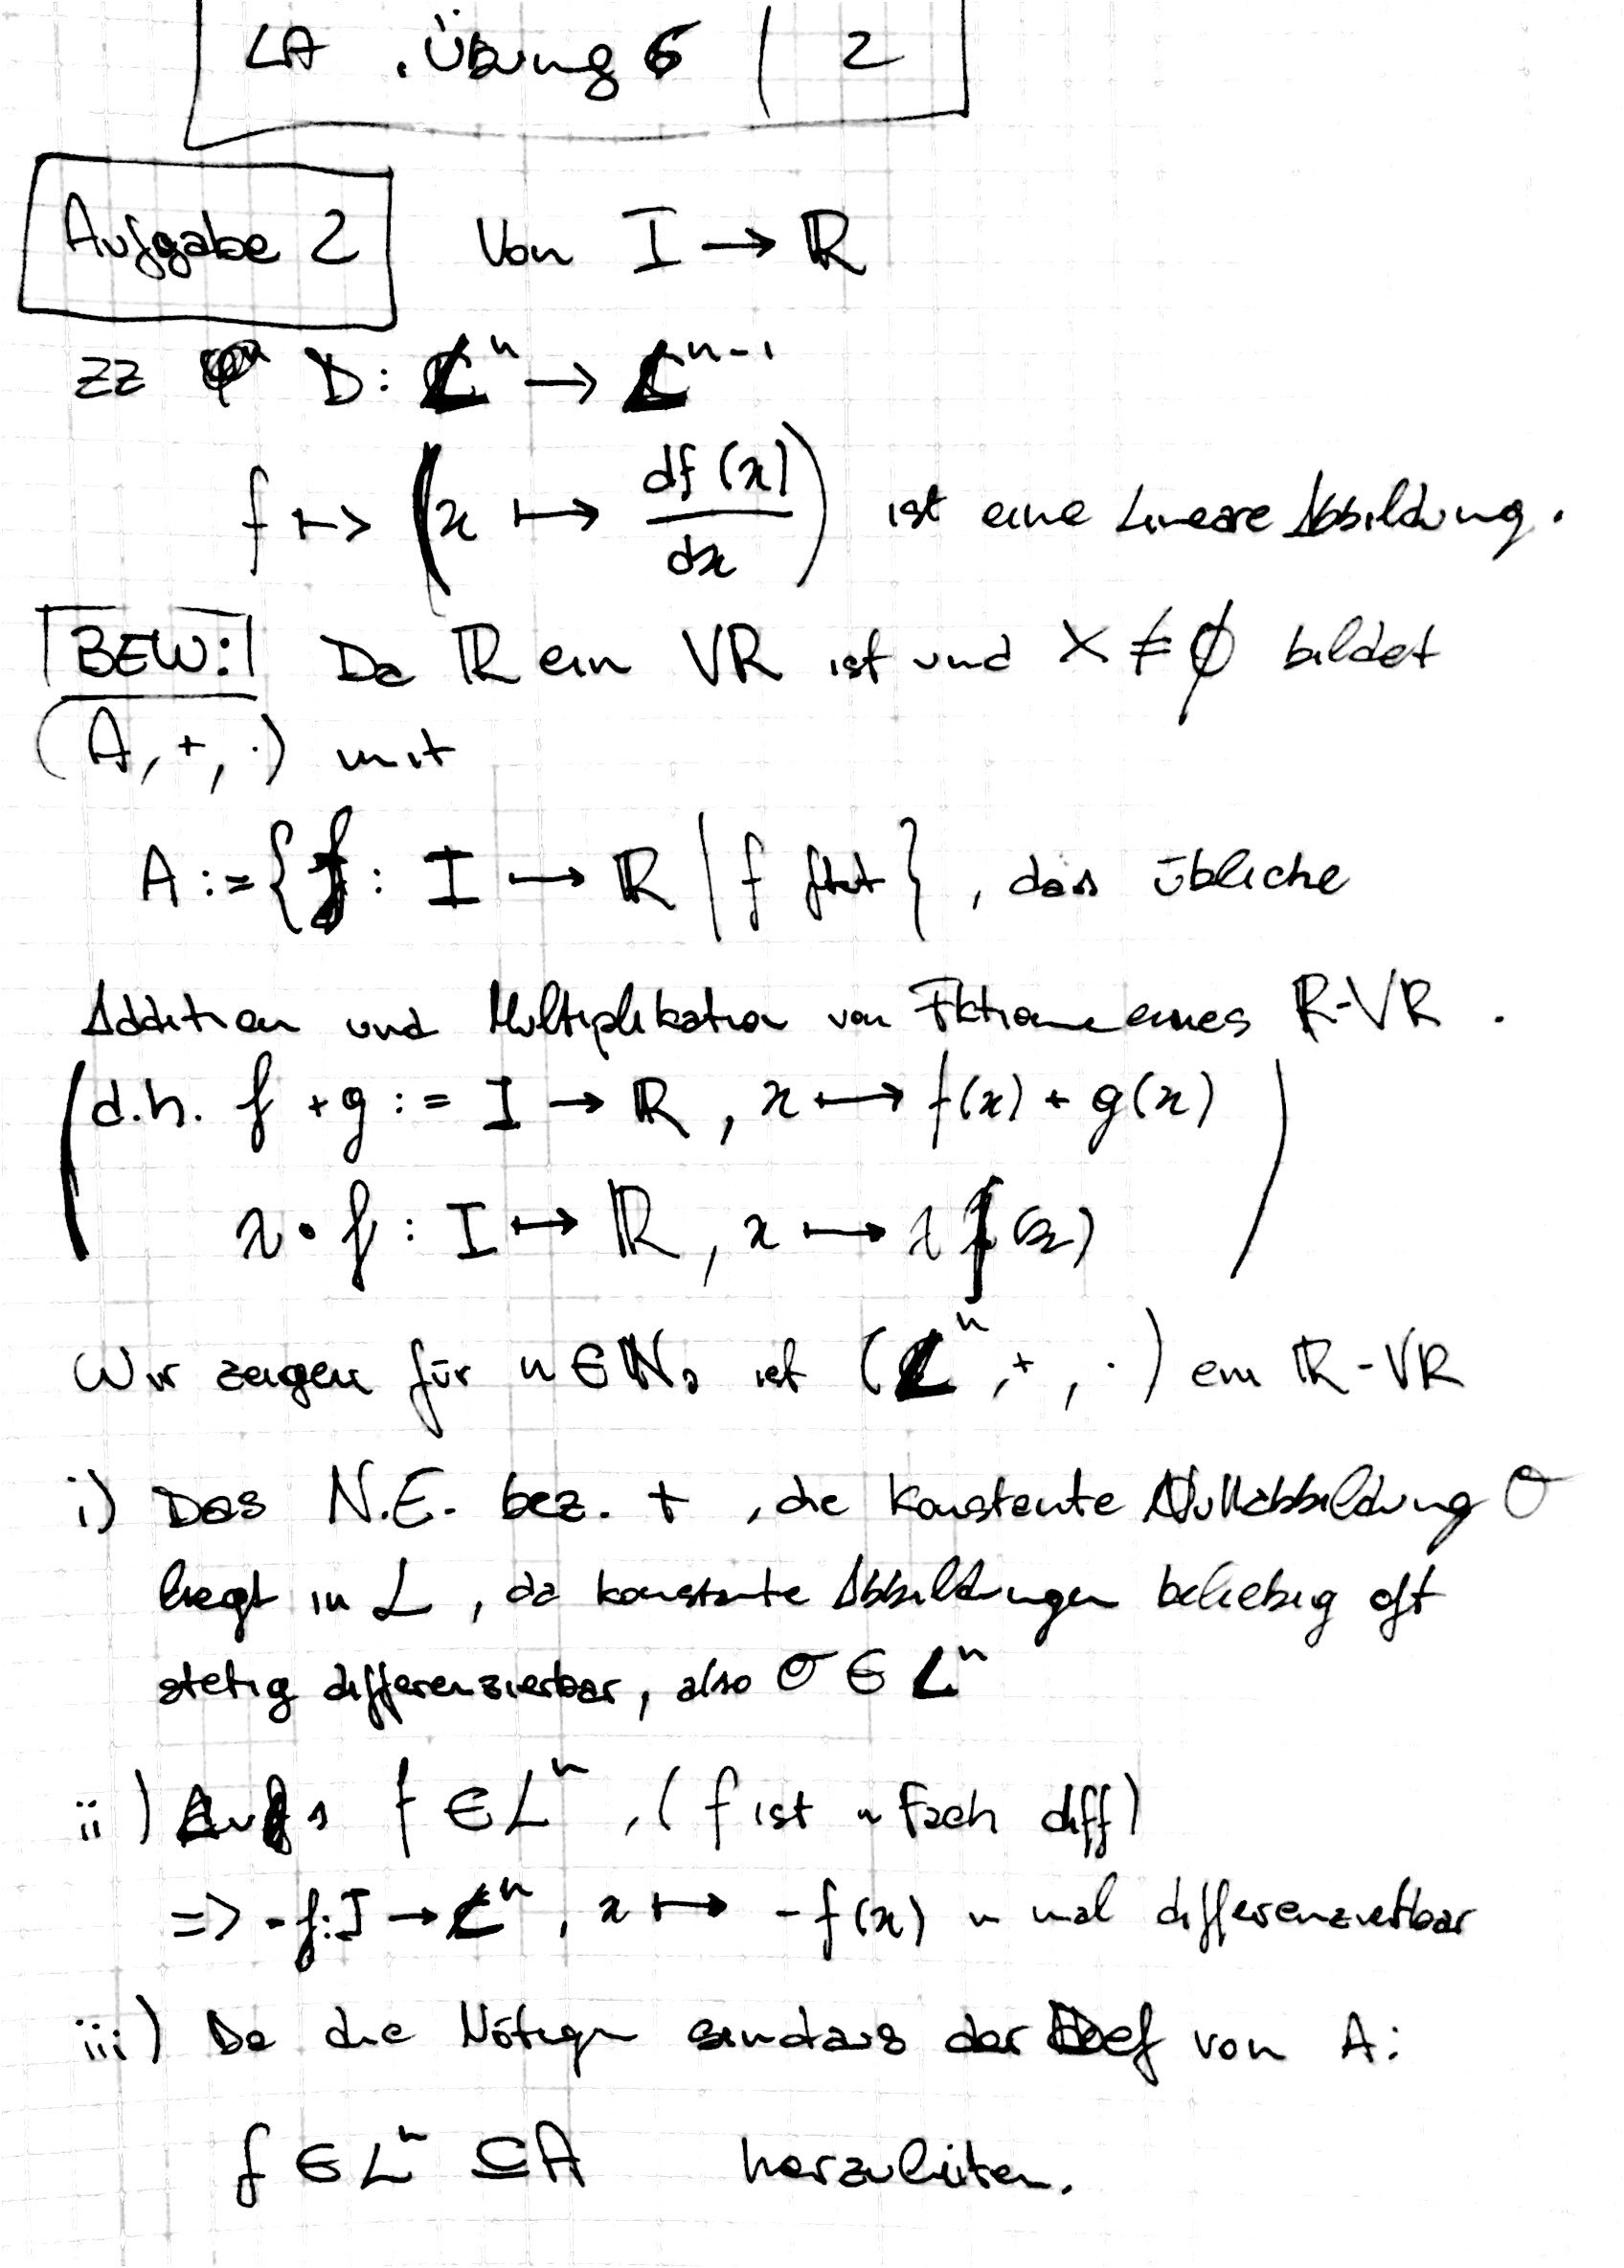 LA . Übung 6 | 2
Aufgabe 2 Von I → ℝ
ZZ D: L^n → L^{n-1}
f ↦ (x ↦ df(x)/dx) ist eine Lineare Abbildung.
BEW: Da ℝ ein VR ist und X ≠ ∅ bildet
(A, +, ·) mit
A := {f : I → ℝ | f }, das übliche
Addition und Multiplikation von Fktionen eines ℝ-VR .
(d.h. f + g := I → ℝ, x ↦ f(x) + g(x)
λ · f : I ↦ ℝ, x ↦ λ f(x))
Wir zeigen für n ∈ ℕ₀ ist (L^n, +, ·) ein ℝ-VR
i) Das N.E. bez. + , die konstante Nullabbildung O
liegt in L, da konstante Abbildungen beliebig oft
stetig differenzierbar, also O ∈ L^n
ii) f ∈ L^n, (f ist n fach diff)
=> -f: I → L^n, x ↦ -f(x) n mal differenzierbar
iii) Da die Nötigen sind aus der Def von A:
f ∈ L^n ⊆ A herzuleiten.